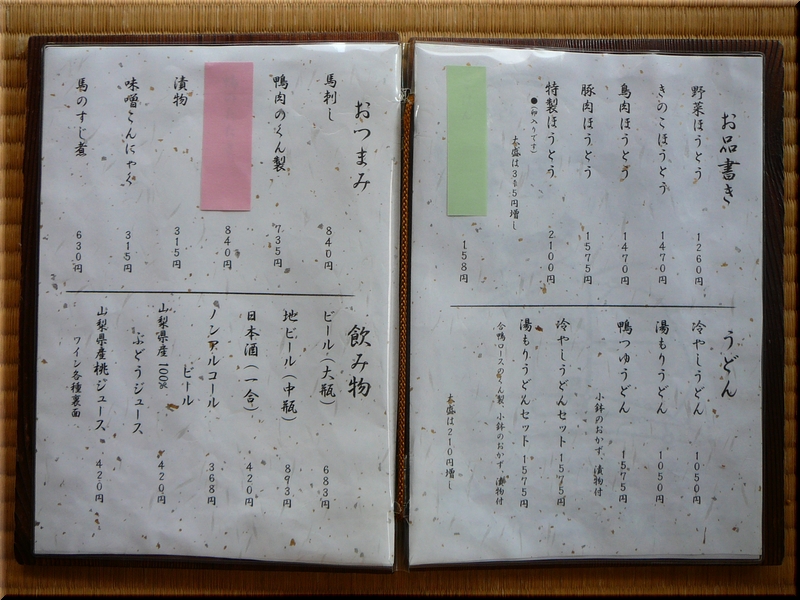 お品書き
野菜ほうとう 1260円
きのこほうとう 1470円
鳥肉ほうとう 1470円
豚肉ほうとう 1575円
特製ほうとう 2100円
●(卵入りです)
大盛は315円増し
158円
うどん
冷やしうどん 1050円
湯もりうどん 1050円
鴨つゆうどん 1575円
小鉢のおかず、漬物付
冷やしうどんセット 1575円
湯もりうどんセット 1575円
合鴨ロースのくん製、小鉢のおかず、漬物付
大盛は210円増し
おつまみ
馬刺し 840円
鴨肉のくん製 735円
840円
漬物 315円
味噌こんにゃく 315円
馬のすじ煮 630円
飲み物
ビール(大瓶) 683円
地ビール(中瓶) 893円
日本酒(一合) 420円
ノンアルコール
ビール 368円
山梨県産100%
ぶどうジュース 420円
山梨県産桃ジュース 420円
ワイン各種裏面